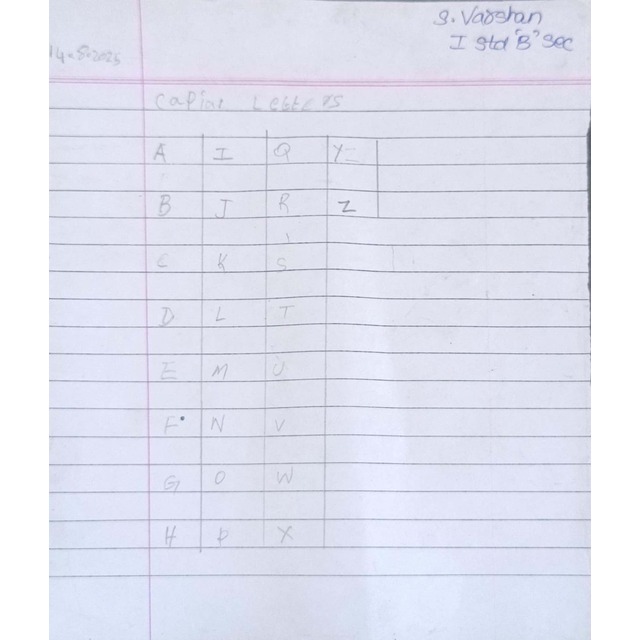 S. Varshan
I std "B" Sec
14.8.2025
Capial Letters
A I Q Y
B J R Z
C K S
D L T
E M U
F N V
G O W
H P X